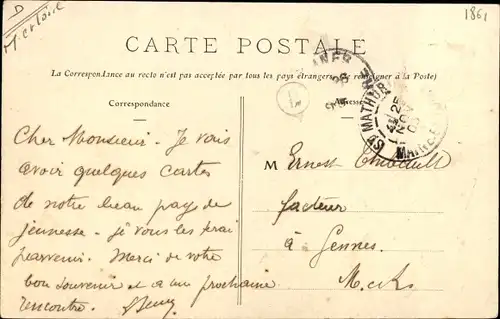 D
M et Loire
1861
CARTE POSTALE
La Correspondance au recto n'est pas acceptée par tous les pays étrangers (Se renseigner à la Poste)
Correspondance
Adresse
ST MATHURIN
25
NOV
05
MAINE
Cher Monsieur. Je vais
avoir quelques cartes
de notre beau pays de
jeunesse - je vous les ferai
parvenir. Merci de votre
bon souvenir et à une prochaine
rencontre.
M Ernest Thibault
facteur
à Gennes.
M. et L.